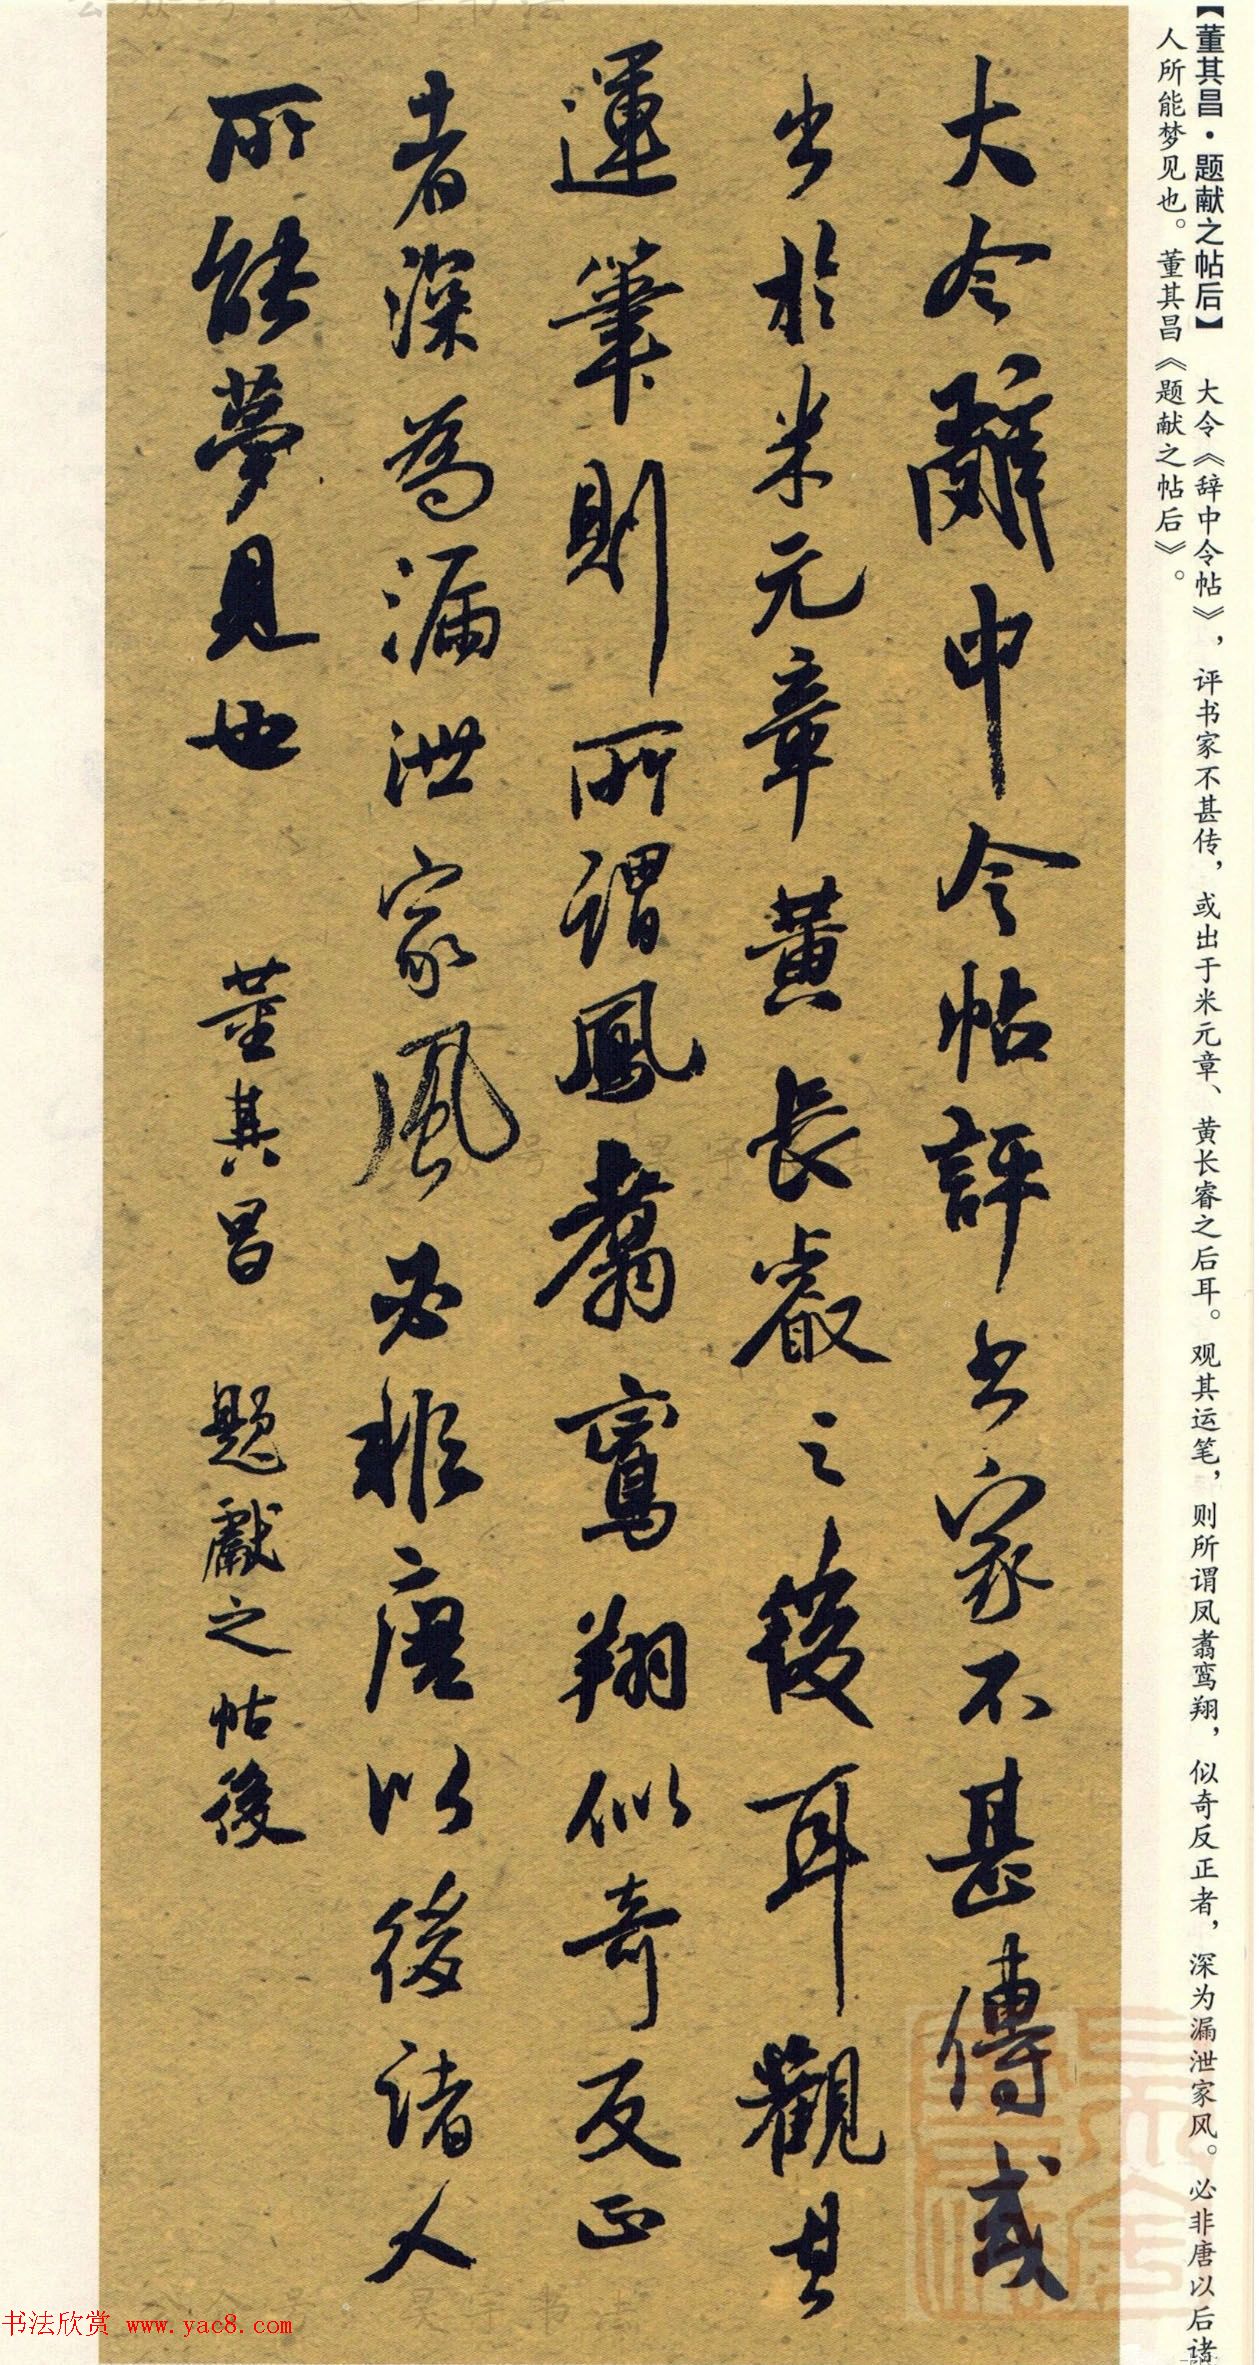 【董其昌·题献之帖后】 大令《辞中令帖》，评书家不甚传，或出于米元章、黄长睿之后耳。观其运笔，则所谓凤翥鸾翔，似奇反正者，深为漏泄家风。必非唐以后诸
人所能梦见也。董其昌《题献之帖后》。
大令辭中令帖評書家不甚傳或
出於米元章黃長睿之後耳觀其
運筆則所謂鳳翥鸞翔似奇反正
者深為漏泄家風必非唐以後諸人
所能夢見也 董其昌 題獻之帖後
书法欣赏 www.yac8.com